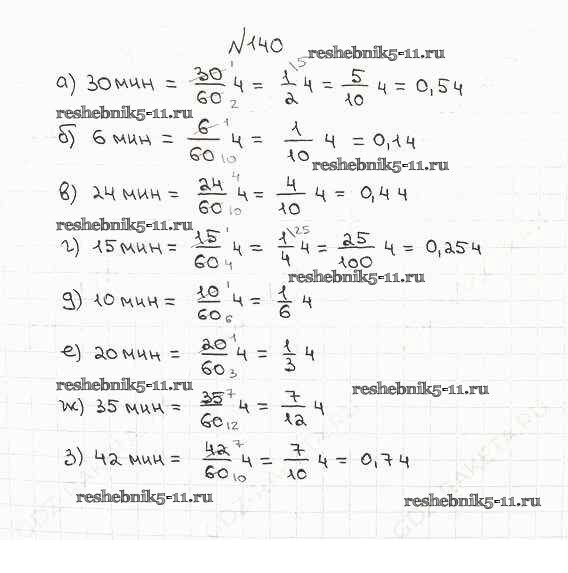 №140
reshebnik5-11.ru
а) 30 мин = 30/60 ч = 1/2 ч = 5/10 ч = 0,5 ч
reshebnik5-11.ru
б) 6 мин = 6/60 ч = 1/10 ч = 0,1 ч
reshebnik5-11.ru
в) 24 мин = 24/60 ч = 4/10 ч = 0,4 ч
reshebnik5-11.ru
г) 15 мин = 15/60 ч = 1/4 ч = 25/100 ч = 0,25 ч
reshebnik5-11.ru
д) 10 мин = 10/60 ч = 1/6 ч
е) 20 мин = 20/60 ч = 1/3 ч
reshebnik5-11.ru reshebnik5-11.ru
ж) 35 мин = 35/60 ч = 7/12 ч
з) 42 мин = 42/60 ч = 7/10 ч = 0,7 ч
reshebnik5-11.ru reshebnik5-11.ru